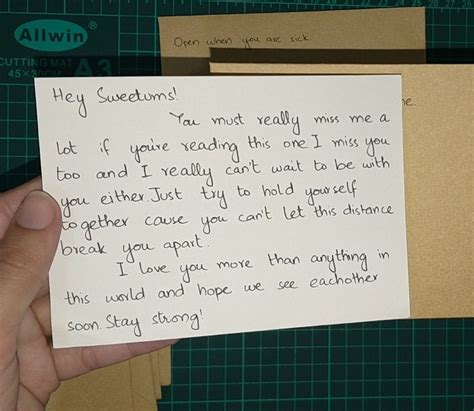 Allwin
CUTTING MAT
45×30CM A3
Open when you are sick.
me
Hey Sweetums!
You must really miss me a
lot if you're reading this one I miss you
too and I really can't wait to be with
you either. Just try to hold yourself
together cause you can't let this distance
break you apart.
I love you more than anything in
this world and hope we see eachother
soon. Stay strong!